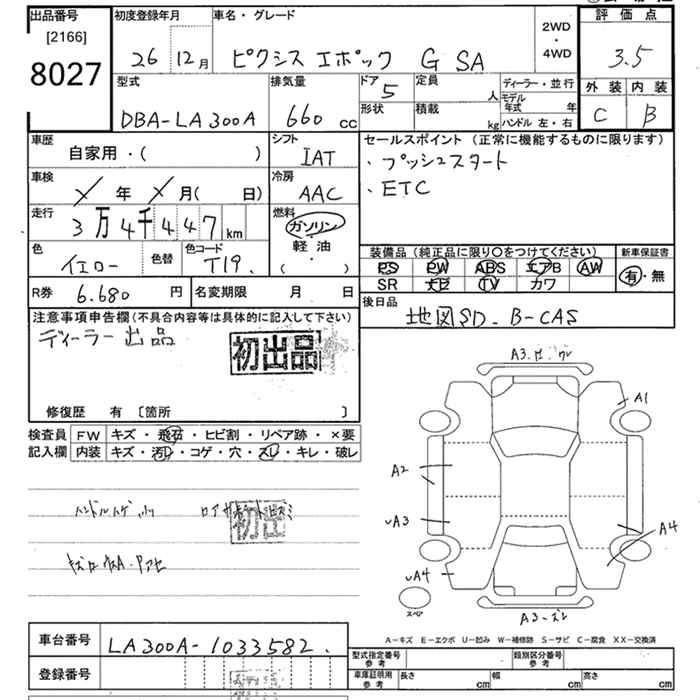 出品番号
[2166]
8027
初度登録年月
26 12月
車名・グレード
ピクシス エポック G SA
2WD
・
4WD
評価点
3.5
外装 内装
C B
型式
DBA-LA300A
排気量
660 cc
ドア
5
定員
人
形状
積載
kg
ディーラー・並行
モデル
年式 年
ハンドル 左・右
車歴
自家用・( )
シフト
IAT
車検
年 月( 日)
冷房
AAC
走行
3万4千447km
燃料
ガソリン
軽油・
( ・ )
色
イエロー
色替
色コード
T19.
R券 6.680 円
名変期限 月 日
セールスポイント(正常に機能するものに限ります)
・プッシュスタート
・ETC
装備品(純正品に限り○をつけてください)
PS PW ABS エアB AW
SR ナビ TV カワ
新車保証書
有・無
後日品
地図SD. B-CAS
注意事項申告欄(不具合内容等は具体的に記入して下さい)
ディーラー出品
初出品
修復歴 有 [箇所 ]
検査員
記入欄
FW キズ・飛石・ヒビ割・リペア跡・×要
内装 キズ・汚れ・コゲ・穴・スレ・キレ・破レ
初出
A1
A2
A3
A4
A4
スペア
A-キズ E-エクボ U-凹み W-補修跡 S-サビ C-腐食 XX-交換済
車台番号
LA300A-1033582.
登録番号
型式指定番号
参考
類別区分番号
参考
車庫証明用
参考
長さ cm
幅 cm
高さ cm